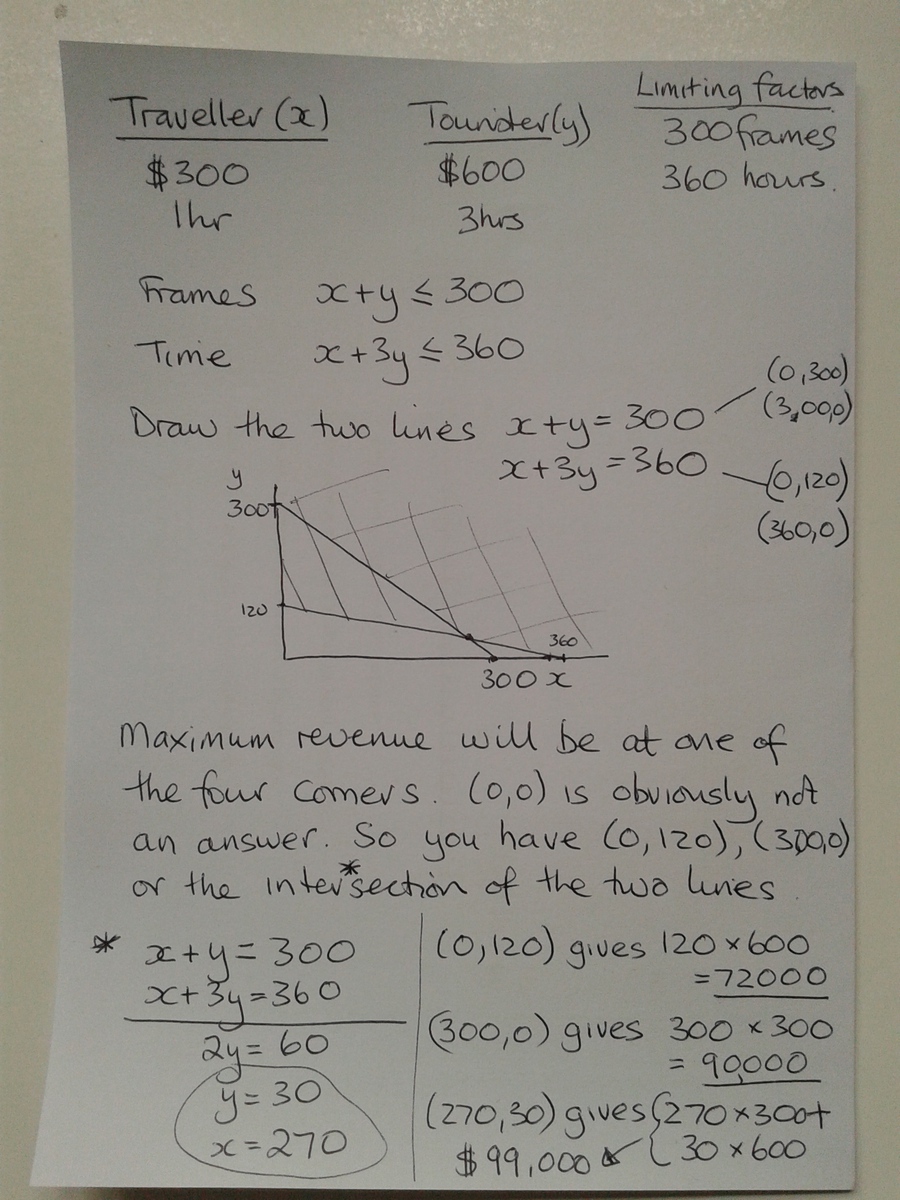 Traveller (x)
$300
1hr
Tourister (y)
$600
3hrs
Limiting factors
300 frames
360 hours.
Frames x+y ≤ 300
Time x+3y ≤ 360
Draw the two lines x+y = 300
x+3y = 360
(0,300)
(3,00,0)
(0,120)
(360,0)
y
300
120
360
300 x
Maximum revenue will be at one of
the four corners. (0,0) is obviously not
an answer. So you have (0,120), (300,0)
or the inter*section of the two lines.
* x+y = 300
x+3y = 360
2y = 60
y = 30
x = 270
(0,120) gives 120 × 600
= 72000
(300,0) gives 300 × 300
= 90,000
(270,30) gives { 270 × 300 +
$99,000 30 × 600